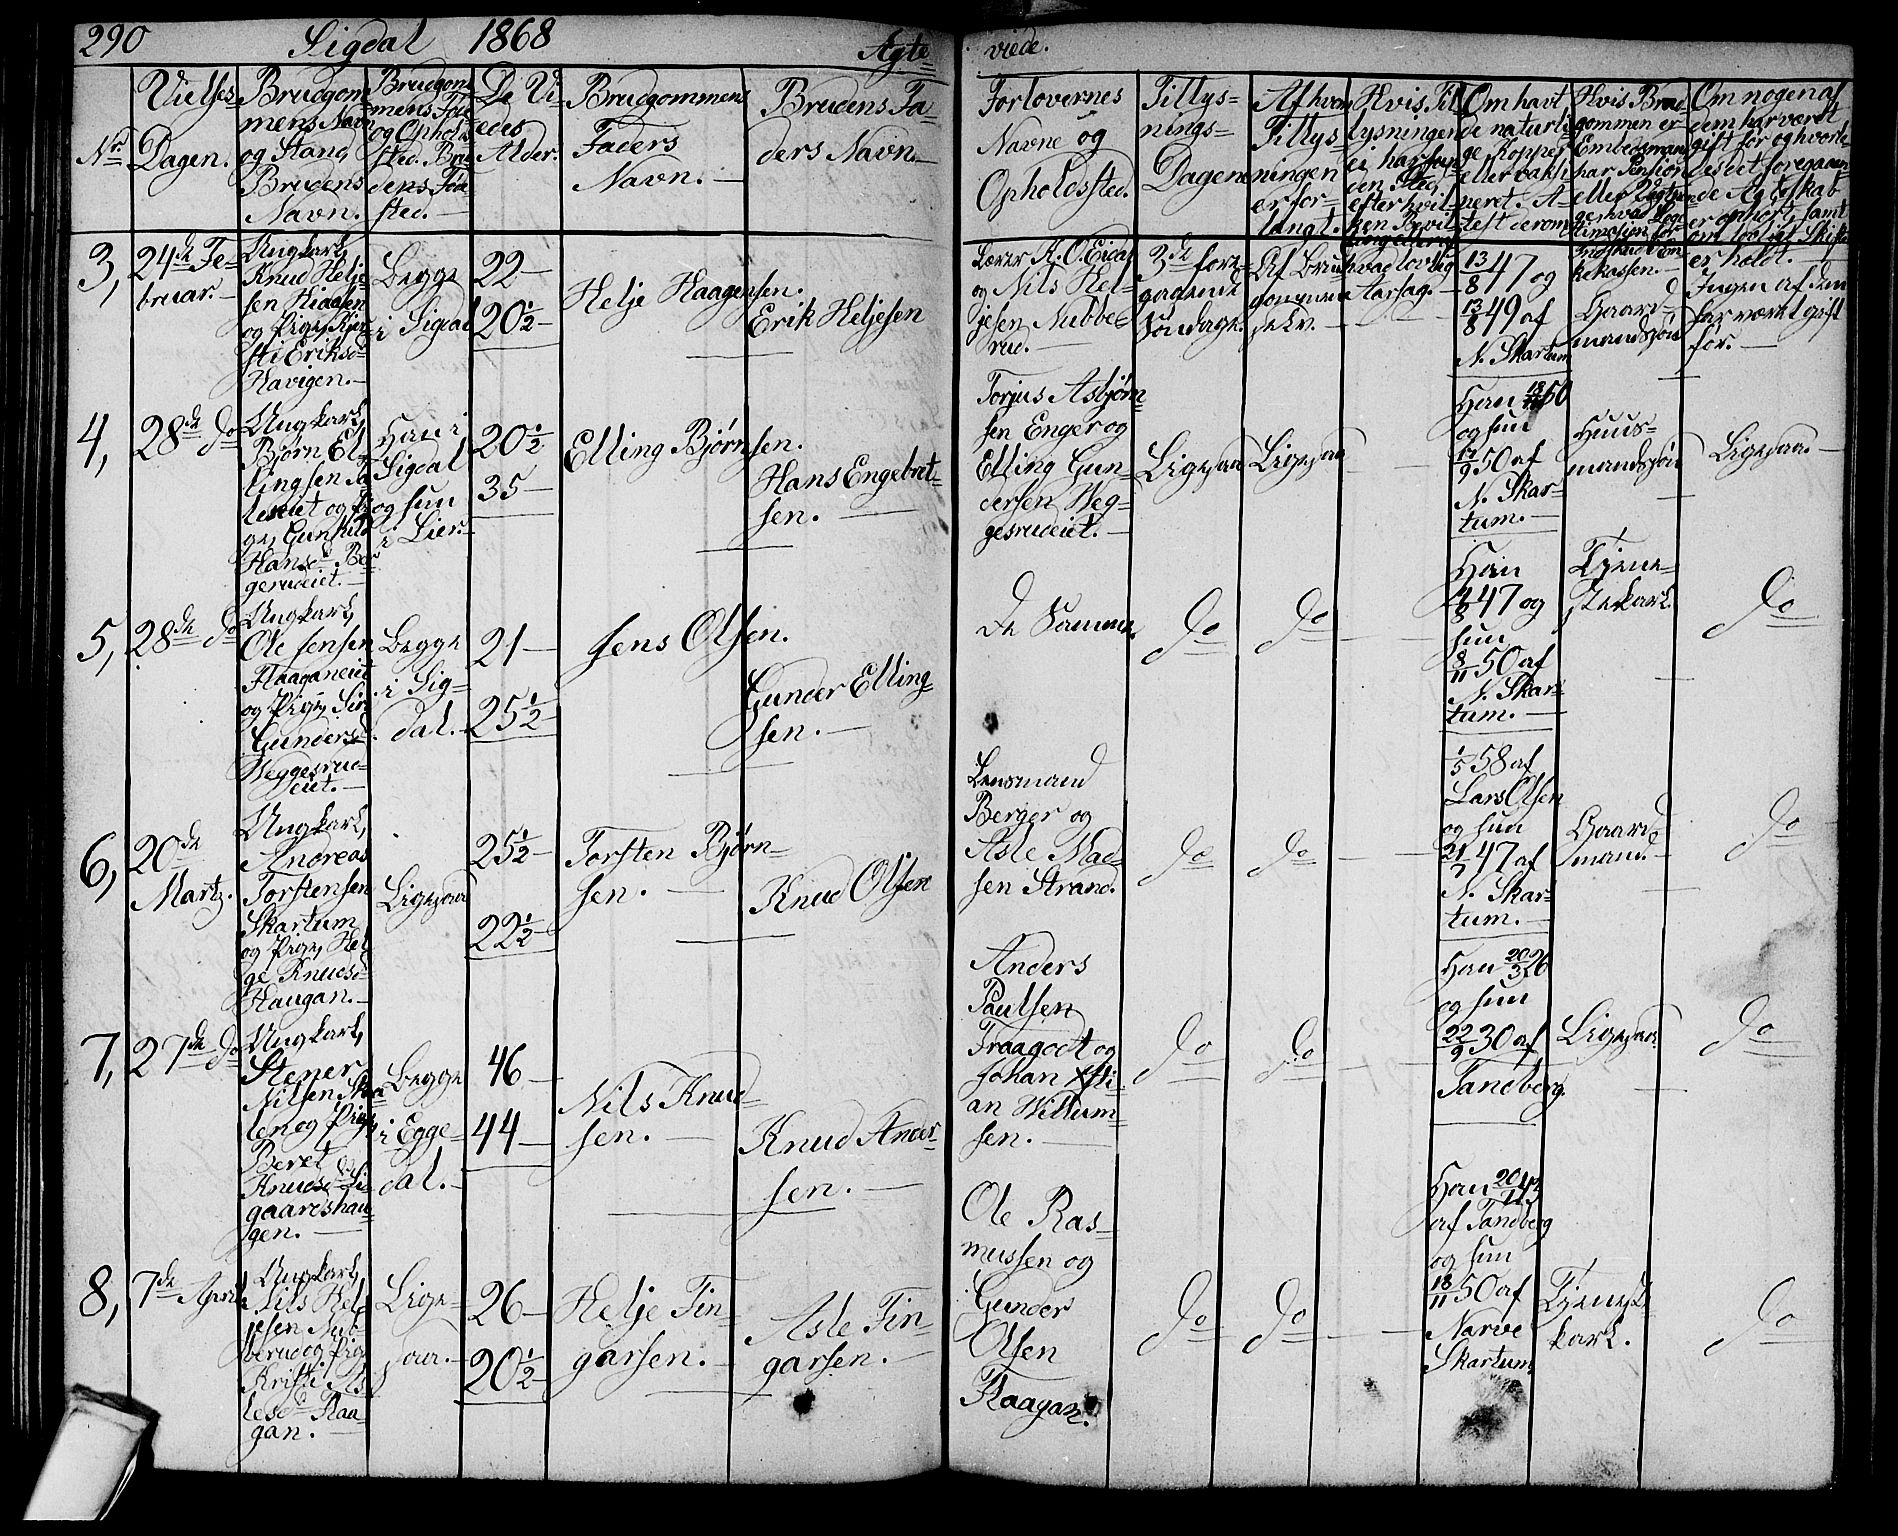 290 Sigdal 1868 Ægte=
viede.
Nr.
Vielses
Dagen.
Brudgom
mens Navn
og Stand,
Brudens
Navn.
Brudgom
mens Fød
og Ophold
sted. Bru
dens Føde
sted.
De Vi
edes
Alder.
Brudgommens
Faders
Navn.
Brudens Fa=
ders Navn.
Forlovernes
Navne og
Opholdssted.
Tillys=
nings=
Dagene
Af hvem
Tillys=
ningen
er for=
langt.
Hvis Til
lysningen
ei har fun
den Sted,
efter hvil
ken Bevil
Om havt
de naturli
ge Kopper
eller vakci
neret. A=
test derom
Hvis Brud
gommen er
Embedsmand
har Pension
Om nogen af
dem har været
gift før og hvorle
des det foregaaen
de Ægteskab
er ophørt, samt
om lovligt Skifte
er holdt.
3,
24de Fe=
bruar.
Ungkarl,
Knud Helje
sen
og Pige Kjer
sti Eriksd
Havigen.
Begge
i Sigdal
22
20½
Helje Haagensen.
Erik Heljesen
Lærer K. O. Eidal
og Nils Hel=
jesen Nubbe=
rud.
3de fore=
gaaende
Søndage.
Af Brud
gommen
selv.
hvad lovlig
Aarsag.
13/8 47 og
13/8 49 af
N. Skartum
Gaard=
mandssøn
Ingen af dem
har været gift
før.
4,
28de do
Ungkarl,
Bjørn El=
lingsen
og Pi
ge, Gunhild
Hansd. Be
gerudeiet.
Han i
Sigdal
og hun
i Lier.
20½
35
Elling Bjørnsen.
Hans Engebret=
sen.
Torjus Asbjørn
sen Enger og
Elling Gun=
dersen Veg=
gesrudeiet.
Ligesaa
Ligesaa
Han 50
og hun
50 af
N. Skar=
tum.
Huus=
mandssøn
Ligesaa.
5,
28de do
Ungkarl,
Ole Jensen
Haaganeiet
og Pige, Siri
Gundersd.
Veggesrud=
eiet.
Begge
i Sig=
dal.
21
25½
Jens Olsen.
Gunder Elling=
sen.
De Samme.
do
do
Han
47 og
hun
8/11 50 af
N. Skar=
tum.
Tjene=
stekarl.
do
6,
20de
Marts.
Ungkarl,
Andreas
Torstensen
Skartum
og Pige, Hel
ge Knudsd
Haugan.
Ligesaa
25½
22½
Torsten Bjørn=
sen.
Knud Olsen
Lensmand
Berger og
Asle Mad=
sen Strand.
do
do
1/5 58 af
Lars Olsen
og hun
21/7 47 af
N. Skar=
tum.
Gaard=
mand.
do
7,
27de do
Ungkarl,
Stener
Nilsen
len og Pige
Beret
Knudsd
gaardshau=
gen.
Begge
i Egge=
dal.
46
44
Nils Knud=
sen.
Knud Ander=
sen.
Anders
Paulsen
Fraagodt og
Johan Xsti=
an Willum=
sen.
do
do
Han 20/3 26
og hun
22/9 30 af
Tandberg.
Ligesaa.
do
8,
7de April
Ungkarl,
Nils Hel=
jesen Nub=
berud og Pige
Kristi As=
lesd Haa=
gan.
Lige=
saa.
26
20½
Helje Fin=
garsen.
Asle Fin=
garsen.
Ole Ras=
mussen og
Gunder
Olsen
Haagan.
do
do
Han
af Tandberg
og hun
18/11 50 af
Narve
Skartum
Tjeneste
karl.
do